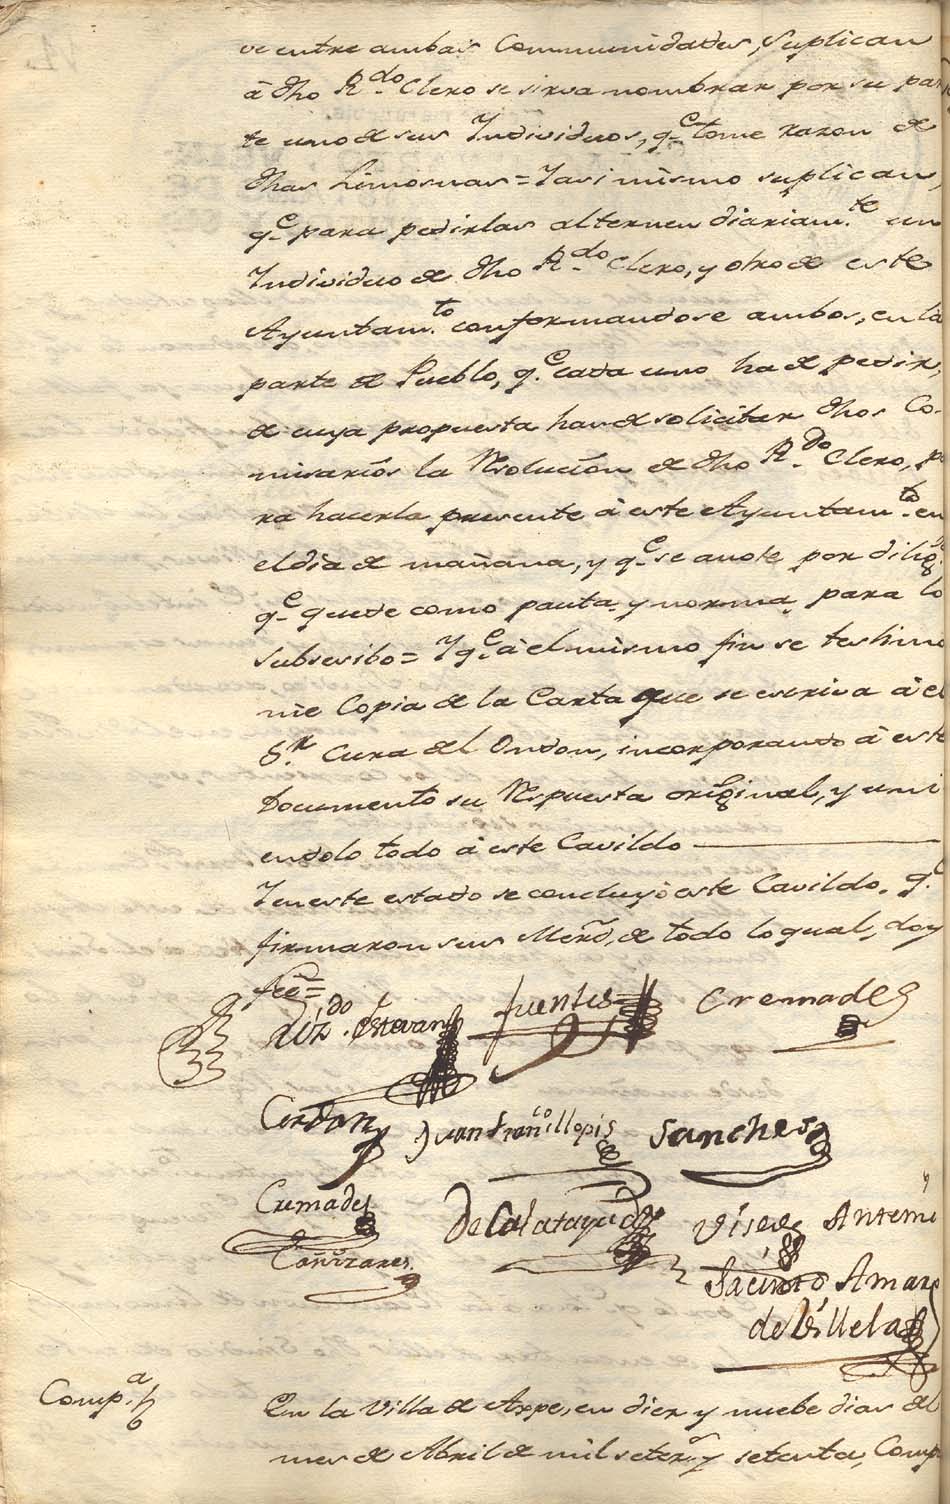 ve entre ambas Communidades, Suplican
â dho R.do Clero se sirva nombrar por su par
te uno de sus Individuos, q.e tome razon de
dhas Limosnas = Y asi mismo suplican,
q.e para pedirlas alternen diariam.te un
Individuo de dho R.do Clero, y otro de este
Ayuntam.to conformandose ambos, en la
parte de Pueblo, q.e cada uno ha de pedir,
de cuya propuesta han de solicitar dhos Co-
misarios la Resolucion de dho R.do Clero, pa
ra hacerla presente â este Ayuntam.to en
el dia de mañana, y q.e se anote por dilig.
q.e quede como pauta y norma para lo
subsesibo = Y q.e â el mismo fin se testimo
nie Copia de la Carta que se escriva â el
S.r Cura del Ondon, incorporando â este
Documento su Respuesta original, y uni
endolo todo â este Cavildo
Y en este estado se concluyó este Cavildo, q.e
firmaron sus Merd, de todo lo qual, doy
feè =
Liz.do Estevan fuentes Cremades
Cerdan Juan Fran.co llopis Sanches
Cremades de Calatayud Viseda Antem i
Cañizares
Jacinto Amar
de Villela
Comp.a En la Villa de Aspe, en diez y nuebe dias del
mes de Abril de mil seter.s y setenta, Comp.